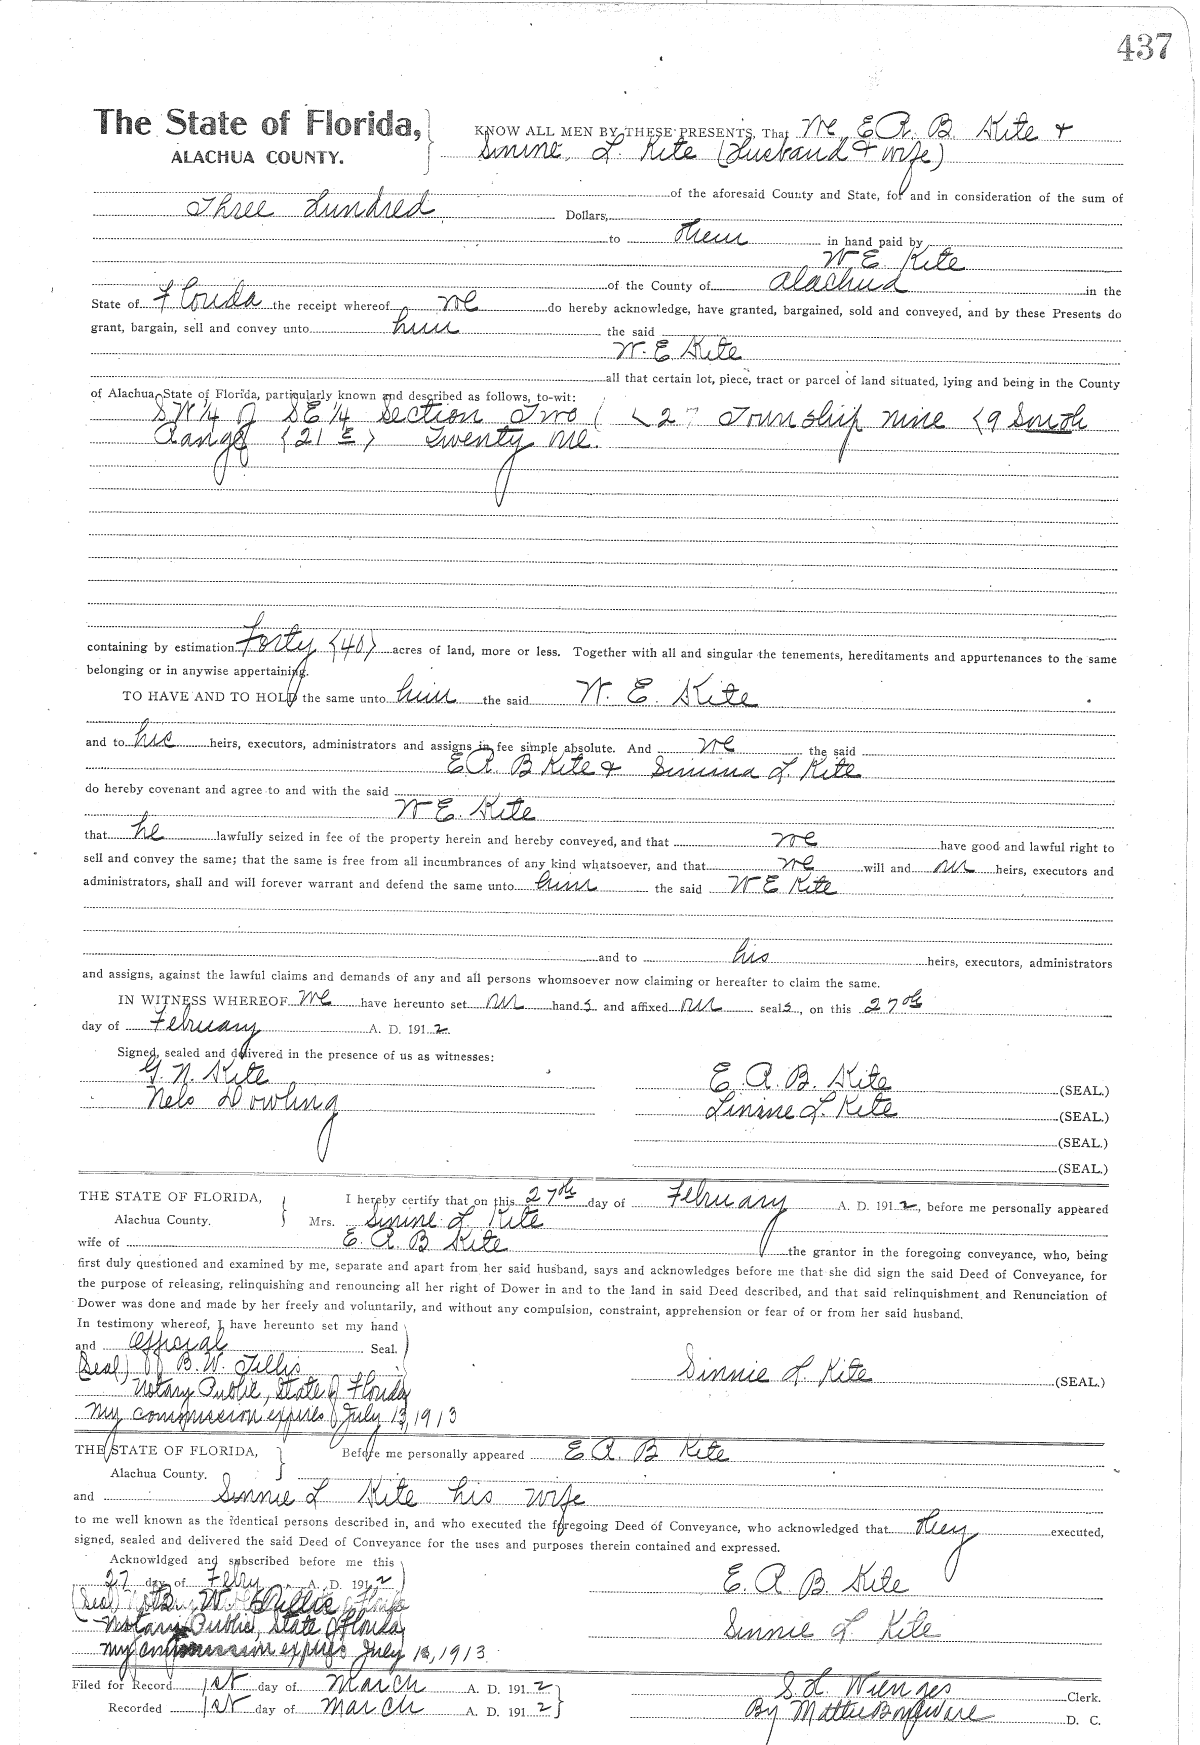 437
The State of Florida,
ALACHUA COUNTY.
KNOW ALL MEN BY THESE PRESENTS, That We, E. A. B. Kite &
Sinnie L. Kite (Husband & wife)
of the aforesaid County and State, for and in consideration of the sum of
Three Hundred Dollars,
to them in hand paid by
W E. Kite
of the County of Alachua in the
State of Florida the receipt whereof we do hereby acknowledge, have granted, bargained, sold and conveyed, and by these Presents do
grant, bargain, sell and convey unto him the said
W. E. Kite
all that certain lot, piece, tract or parcel of land situated, lying and being in the County
of Alachua, State of Florida, particularly known and described as follows, to-wit:
SW 1/4 of SE 1/4 Section Two (2) Township nine (9 South
Range (21 E) Twenty one.
containing by estimation Forty (40) acres of land, more or less. Together with all and singular the tenements, hereditaments and appurtenances to the same
belonging or in anywise appertaining.
TO HAVE AND TO HOLD the same unto him the said W. E. Kite
and to his heirs, executors, administrators and assigns in fee simple absolute. And we the said
E A. B Kite & Sinnia L. Kite
do hereby covenant and agree to and with the said
W E. Kite
that he lawfully seized in fee of the property herein and hereby conveyed, and that we have good and lawful right to
sell and convey the same; that the same is free from all incumbrances of any kind whatsoever, and that we will and our heirs, executors and
administrators, shall and will forever warrant and defend the same unto him the said W E Kite
and to his heirs, executors, administrators
and assigns, against the lawful claims and demands of any and all persons whomsoever now claiming or hereafter to claim the same.
IN WITNESS WHEREOF We have hereunto set our hands and affixed our seals, on this 27th
day of February A. D. 1912.
Signed, sealed and delivered in the presence of us as witnesses:
G. N. Kite
Nels Dowling
E. A. B. Kite (SEAL.)
Sinnie L. Kite (SEAL.)
(SEAL.)
(SEAL.)
THE STATE OF FLORIDA,
Alachua County.
I hereby certify that on this 27th day of February A. D. 1912, before me personally appeared
Mrs. Sinnie L Kite
wife of E. A. B Kite the grantor in the foregoing conveyance, who, being
first duly questioned and examined by me, separate and apart from her said husband, says and acknowledges before me that she did sign the said Deed of Conveyance, for
the purpose of releasing, relinquishing and renouncing all her right of Dower in and to the land in said Deed described, and that said relinquishment and Renunciation of
Dower was done and made by her freely and voluntarily, and without any compulsion, constraint, apprehension or fear of or from her said husband.
In testimony whereof, I have hereunto set my hand
and official Seal.
(Seal) of B. W. Tillis
Notary Public, State of Florida
My commission expires July 13, 1913
Sinnie L Kite (SEAL.)
THE STATE OF FLORIDA,
Alachua County.
Before me personally appeared E A. B Kite
and Sinnie L Kite his wife
to me well known as the identical persons described in, and who executed the foregoing Deed of Conveyance, who acknowledged that they executed,
signed, sealed and delivered the said Deed of Conveyance for the uses and purposes therein contained and expressed.
Acknowldged and subscribed before me this
27 day of Feby A. D. 1912
(Seal) B. W. Tillis
Notary Public, State of Florida
My commission expires July 13, 1913
E. A. B Kite
Sinnie L Kite
Filed for Record 1st day of March A. D. 1912
Recorded 1st day of March A. D. 1912
S. H. Wienges Clerk.
By Mattie D. C.